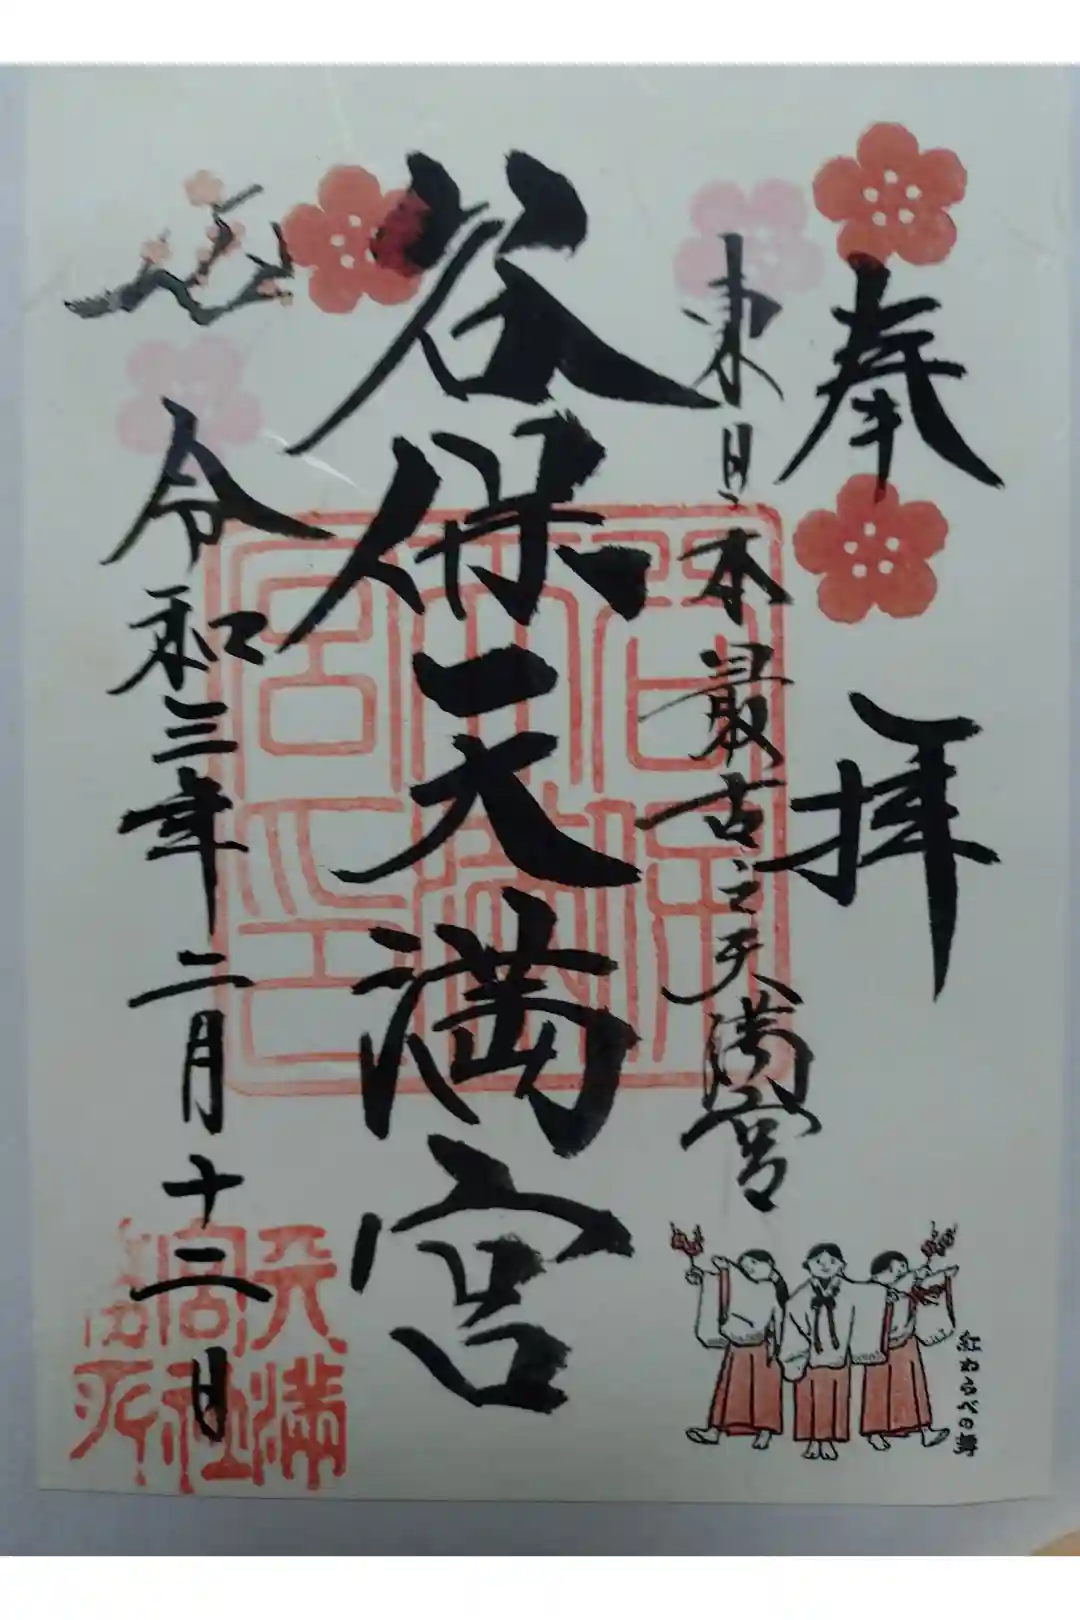 奉拝
東日本最古之天満宮
谷保天満宮
令和三年二月十二日
紅わらべの舞
谷保天満宮印
天満宮社務所